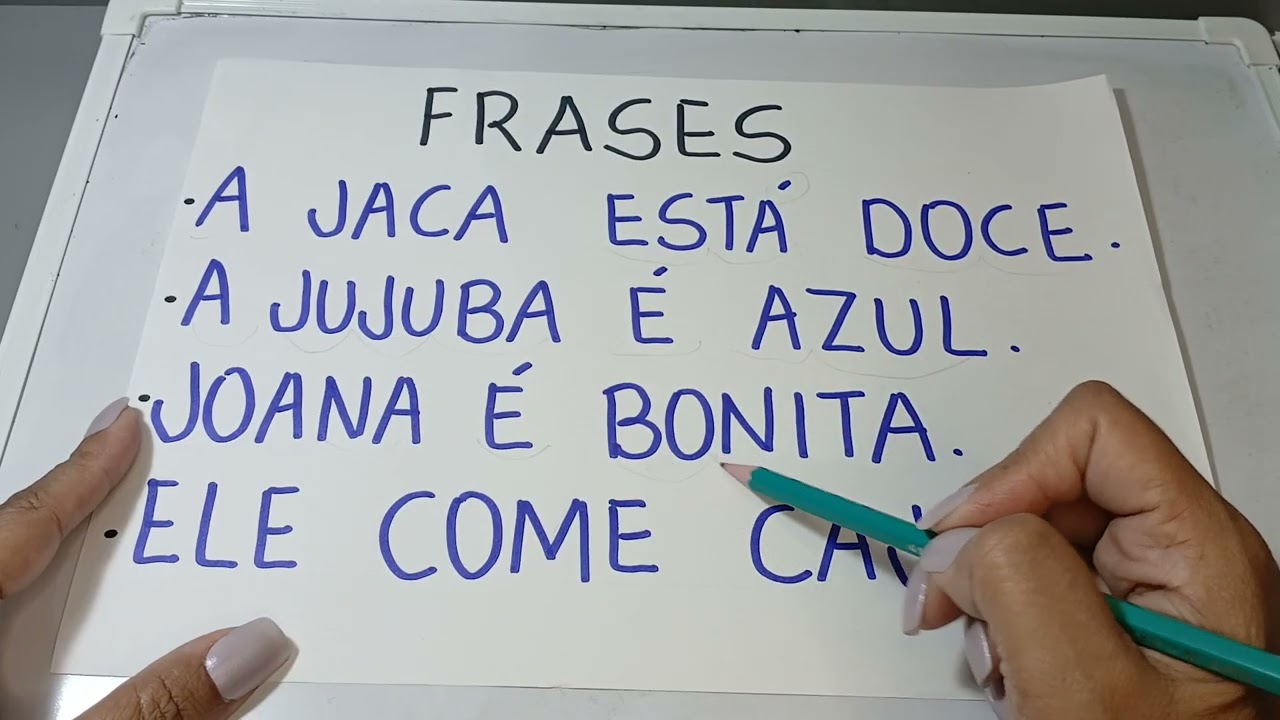 FRASES
• A JACA ESTÁ DOCE.
• A JUJUBA É AZUL.
• JOANA É BONITA.
• ELE COME